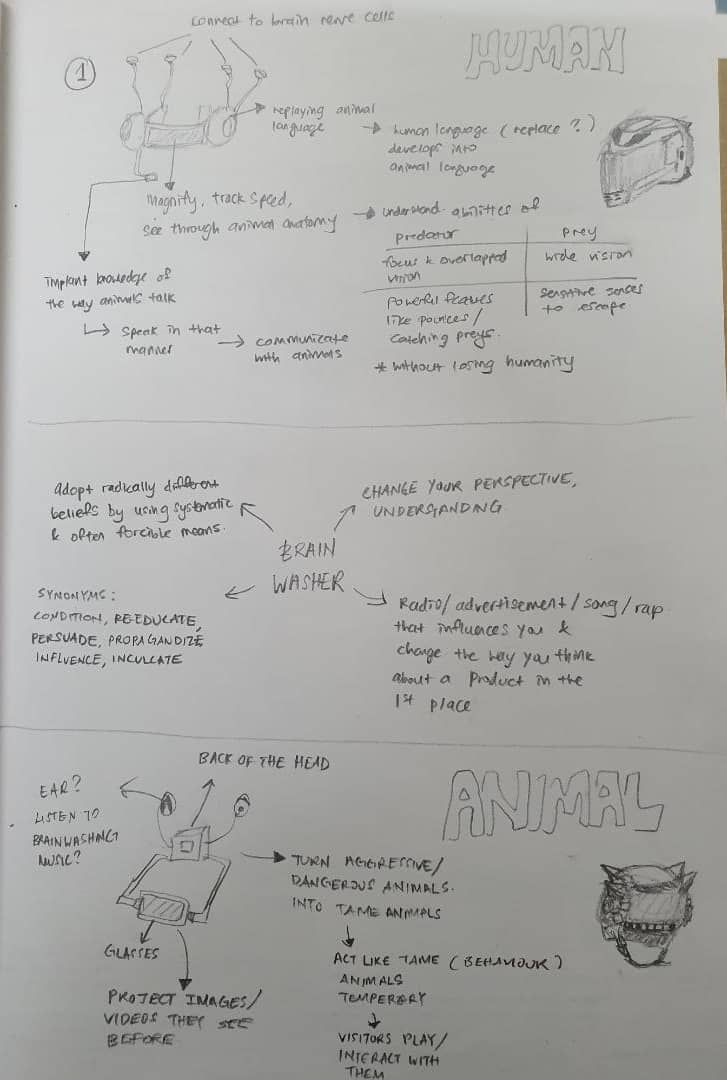 connect to brain nerve cells
HUMAN
1
replaying animal
language
human language (replace?)
develops into
animal language
Magnify, track speed,
see through animal anatomy
understand abilities of
predator
prey
focus & overlapped
vision
wide vision
powerful
like pounces/
catching preys.
sensitive senses
to escape
* without losing humanity
implant knowledge of
the way animals talk
speak in that
manner
communicate
with animals
adopt radically different
beliefs by using systematic
& often forcible means.
CHANGE YOUR PERSPECTIVE,
UNDERSTANDING
BRAIN
WASHER
SYNONYMS:
CONDITION, RE-EDUCATE,
PERSUADE, PROPAGANDIZE
INFLUENCE, INCULCATE
Radio/advertisement/song/rap
that influences you &
change the way you think
about a product in the
1st place
BACK OF THE HEAD
ANIMAL
EAR?
LISTEN TO
BRAINWASHING
MUSIC?
TURN AGGRESSIVE/
DANGEROUS ANIMALS.
INTO TAME ANIMALS
GLASSES
ACT LIKE TAME (BEHAVIOUR)
ANIMALS
TEMPERORY
PROJECT IMAGES/
VIDEOS THEY SEE
BEFORE
VISITORS PLAY/
INTERACT WITH
THEM